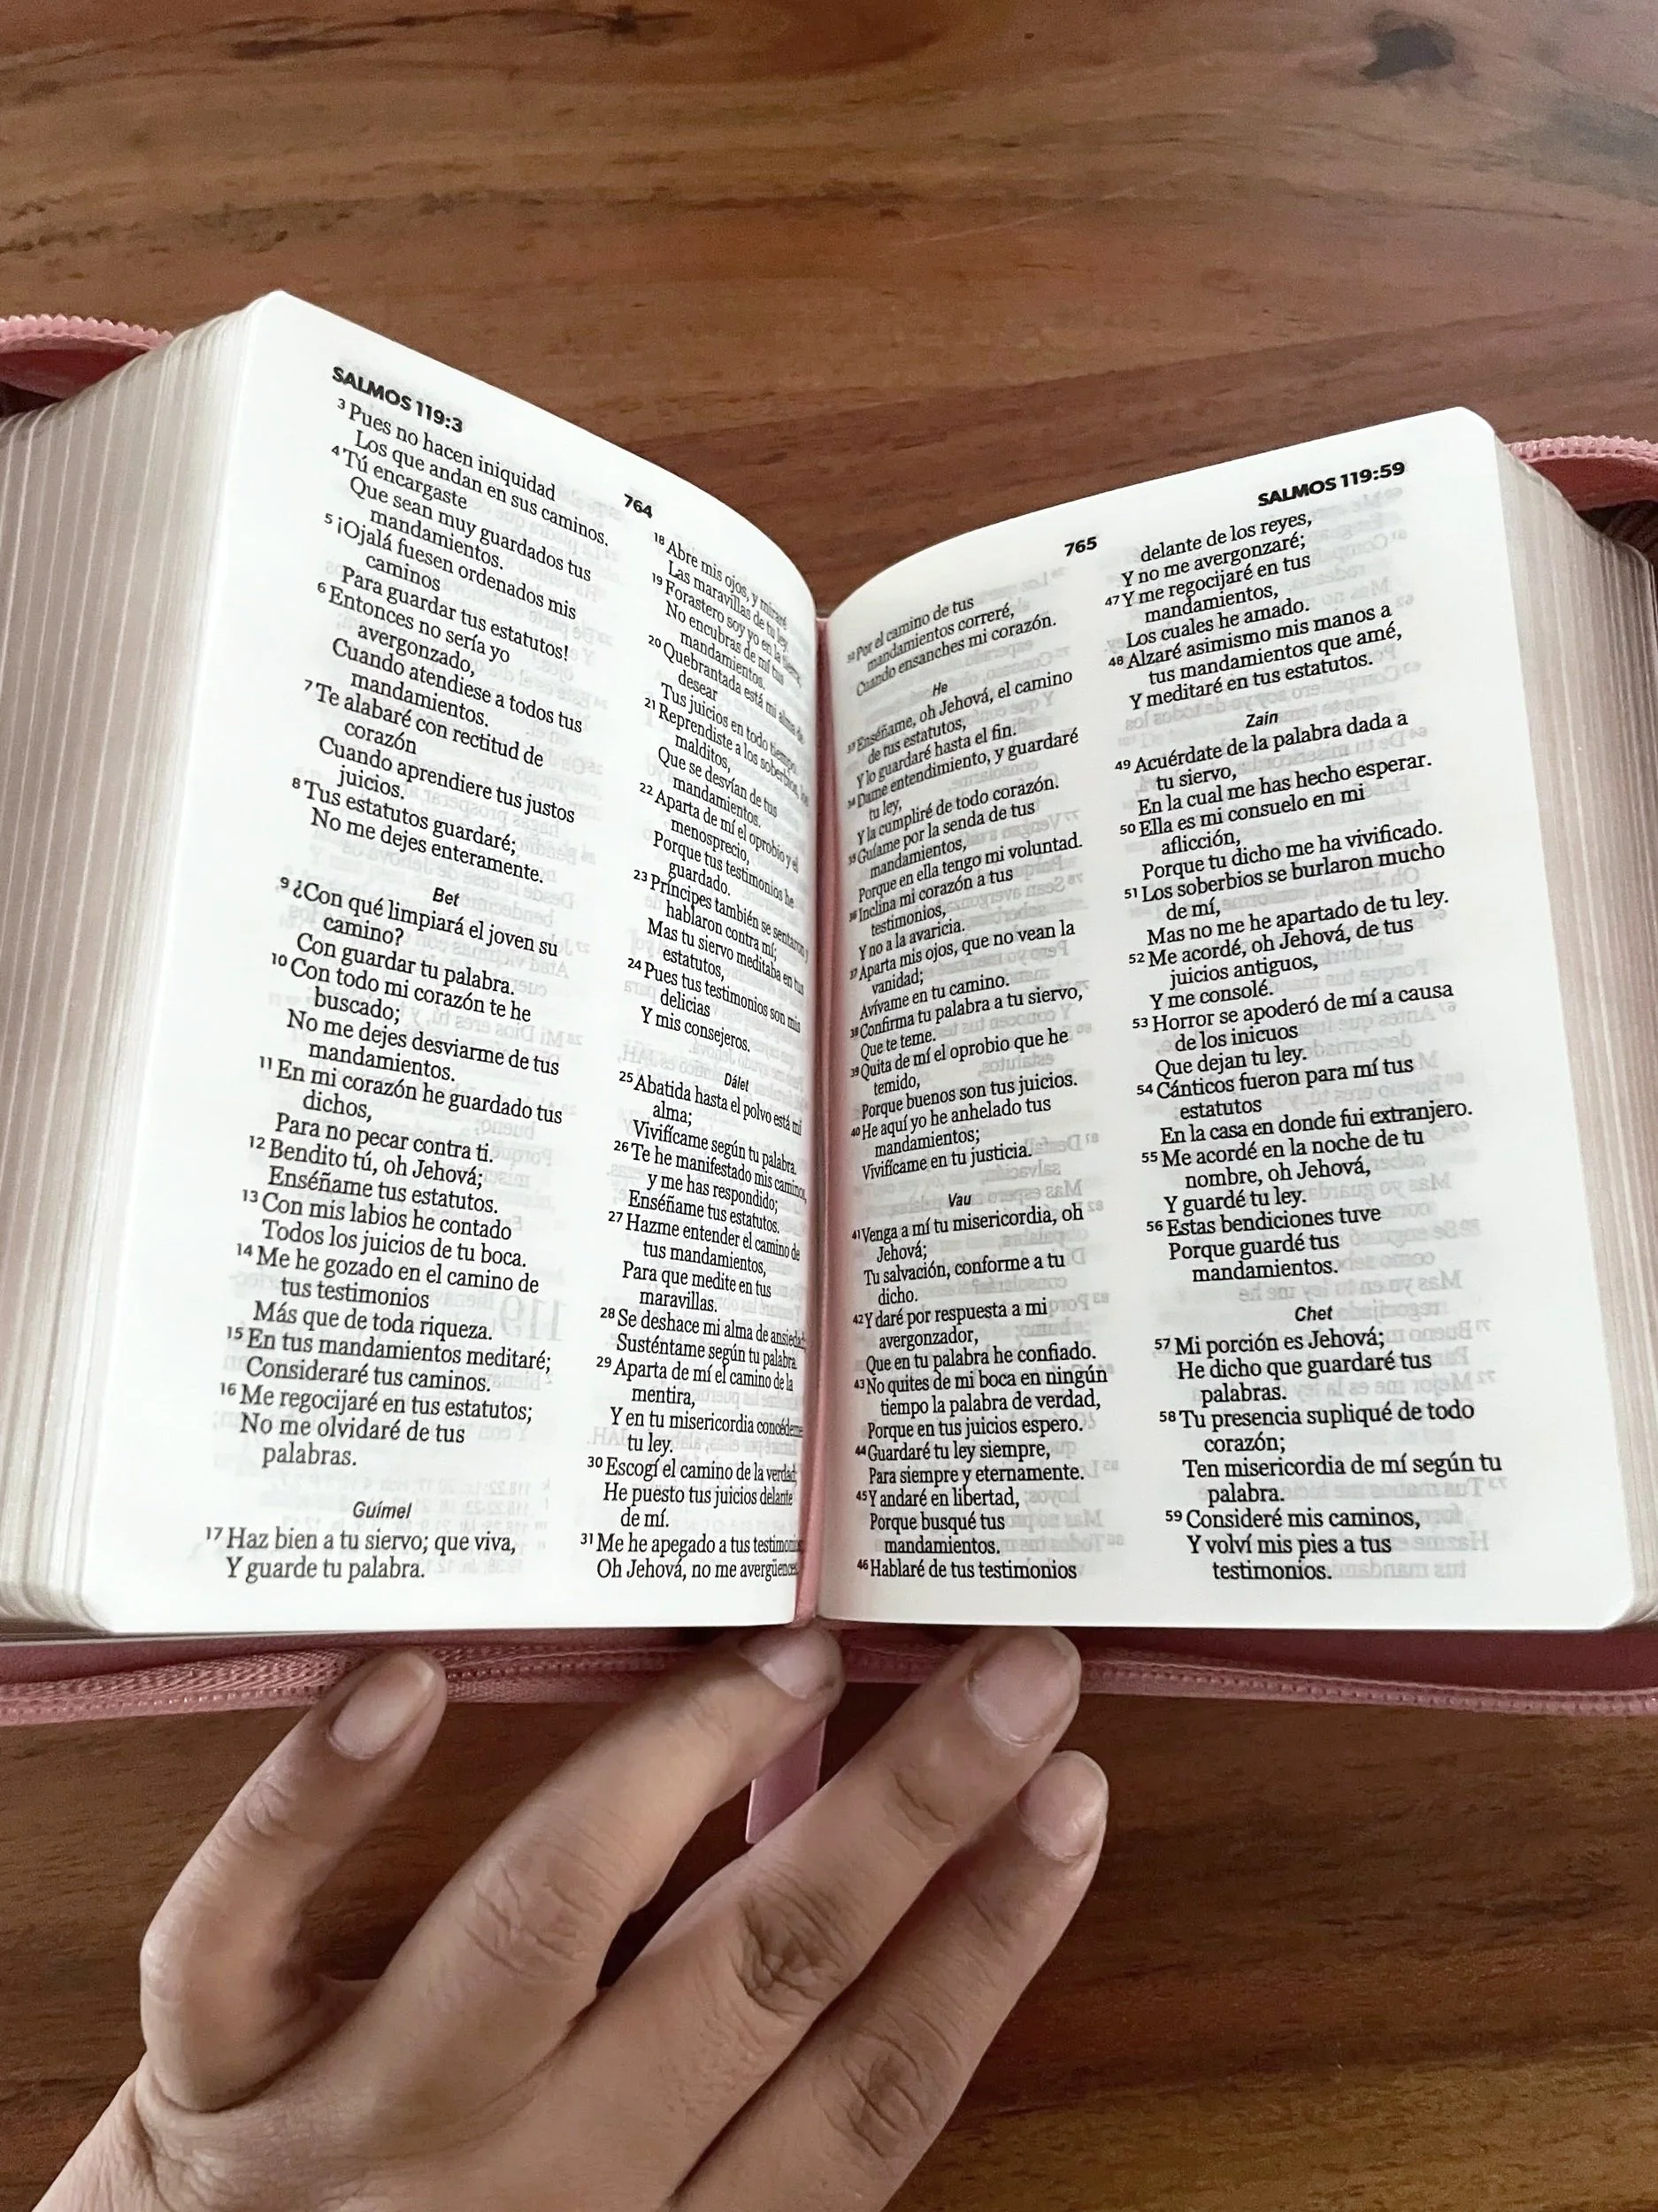 SALMOS 119:3
764
3 Pues no hacen iniquidad
Los que andan en sus caminos.
4 Tú encargaste
Que sean muy guardados tus
mandamientos.
5 ¡Ojalá fuesen ordenados mis
caminos
Para guardar tus estatutos!
6 Entonces no sería yo
avergonzado,
Cuando atendiese a todos tus
mandamientos.
7 Te alabaré con rectitud de
corazón
Cuando aprendiere tus justos
juicios.
8 Tus estatutos guardaré;
No me dejes enteramente.
Bet
9 ¿Con qué limpiará el joven su
camino?
Con guardar tu palabra.
10 Con todo mi corazón te he
buscado;
No me dejes desviarme de tus
mandamientos.
11 En mi corazón he guardado tus
dichos,
Para no pecar contra ti.
12 Bendito tú, oh Jehová;
Enséñame tus estatutos.
13 Con mis labios he contado
Todos los juicios de tu boca.
14 Me he gozado en el camino de
tus testimonios
Más que de toda riqueza.
15 En tus mandamientos meditaré;
Consideraré tus caminos.
16 Me regocijaré en tus estatutos;
No me olvidaré de tus
palabras.
Guímel
17 Haz bien a tu siervo; que viva,
Y guarde tu palabra.
18 Abre mis ojos, y miraré
Las maravillas de tu ley.
19 Forastero soy yo en la tierra;
No encubras de mí tus
mandamientos.
20 Quebrantada está mi alma de
desear
Tus juicios en todo tiempo.
21 Reprendiste a los soberbios, los
malditos,
Que se desvían de tus
mandamientos.
22 Aparta de mí el oprobio y el
menosprecio,
Porque tus testimonios he
guardado.
23 Príncipes también se sentaron y
hablaron contra mí;
Mas tu siervo meditaba en tus
estatutos,
24 Pues tus testimonios son mis
delicias
Y mis consejeros.
Dálet
25 Abatida hasta el polvo está mi
alma;
Vivifícame según tu palabra.
26 Te he manifestado mis caminos,
y me has respondido;
Enséñame tus estatutos.
27 Hazme entender el camino de
tus mandamientos,
Para que medite en tus
maravillas.
28 Se deshace mi alma de ansiedad;
Susténtame según tu palabra.
29 Aparta de mí el camino de la
mentira,
Y en tu misericordia concédeme
tu ley.
30 Escogí el camino de la verdad;
He puesto tus juicios delante
de mí.
31 Me he apegado a tus testimonios;
Oh Jehová, no me avergüences.
765
SALMOS 119:59
32 Por el camino de tus
mandamientos correré,
Cuando ensanches mi corazón.
He
33 Enséñame, oh Jehová, el camino
de tus estatutos,
Y lo guardaré hasta el fin.
34 Dame entendimiento, y guardaré
tu ley,
Y la cumpliré de todo corazón.
35 Guíame por la senda de tus
mandamientos,
Porque en ella tengo mi voluntad.
36 Inclina mi corazón a tus
testimonios,
Y no a la avaricia.
37 Aparta mis ojos, que no vean la
vanidad;
Avívame en tu camino.
38 Confirma tu palabra a tu siervo,
Que te teme.
39 Quita de mí el oprobio que he
temido,
Porque buenos son tus juicios.
40 He aquí yo he anhelado tus
mandamientos;
Vivifícame en tu justicia.
Vau
41 Venga a mí tu misericordia, oh
Jehová;
Tu salvación, conforme a tu
dicho.
42 Y daré por respuesta a mi
avergonzador,
Que en tu palabra he confiado.
43 No quites de mi boca en ningún
tiempo la palabra de verdad,
Porque en tus juicios espero.
44 Guardaré tu ley siempre,
Para siempre y eternamente.
45 Y andaré en libertad,
Porque busqué tus
mandamientos.
46 Hablaré de tus testimonios
delante de los reyes,
Y no me avergonzaré;
47 Y me regocijaré en tus
mandamientos,
Los cuales he amado.
48 Alzaré asimismo mis manos a
tus mandamientos que amé,
Y meditaré en tus estatutos.
Zain
49 Acuérdate de la palabra dada a
tu siervo,
En la cual me has hecho esperar.
50 Ella es mi consuelo en mi
aflicción,
Porque tu dicho me ha vivificado.
51 Los soberbios se burlaron mucho
de mí,
Mas no me he apartado de tu ley.
52 Me acordé, oh Jehová, de tus
juicios antiguos,
Y me consolé.
53 Horror se apoderó de mí a causa
de los inicuos
Que dejan tu ley.
54 Cánticos fueron para mí tus
estatutos
En la casa en donde fui extranjero.
55 Me acordé en la noche de tu
nombre, oh Jehová,
Y guardé tu ley.
56 Estas bendiciones tuve
Porque guardé tus
mandamientos.
Chet
57 Mi porción es Jehová;
He dicho que guardaré tus
palabras.
58 Tu presencia supliqué de todo
corazón;
Ten misericordia de mí según tu
palabra.
59 Consideré mis caminos,
Y volví mis pies a tus
testimonios.